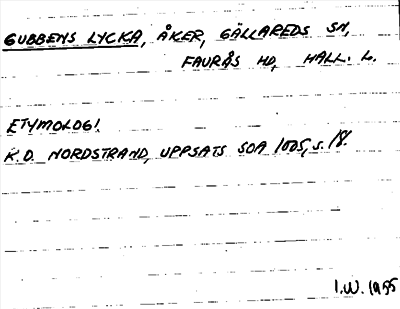 GUBBENS LYCKA, ÅKER, GÄLLAREDS SN,
FAURÅS HD, HALL. L.
ETYMOLOGI
K.D. NORDSTRAND, UPPSATS SOA 1005, s. 18.
I.W. 1955